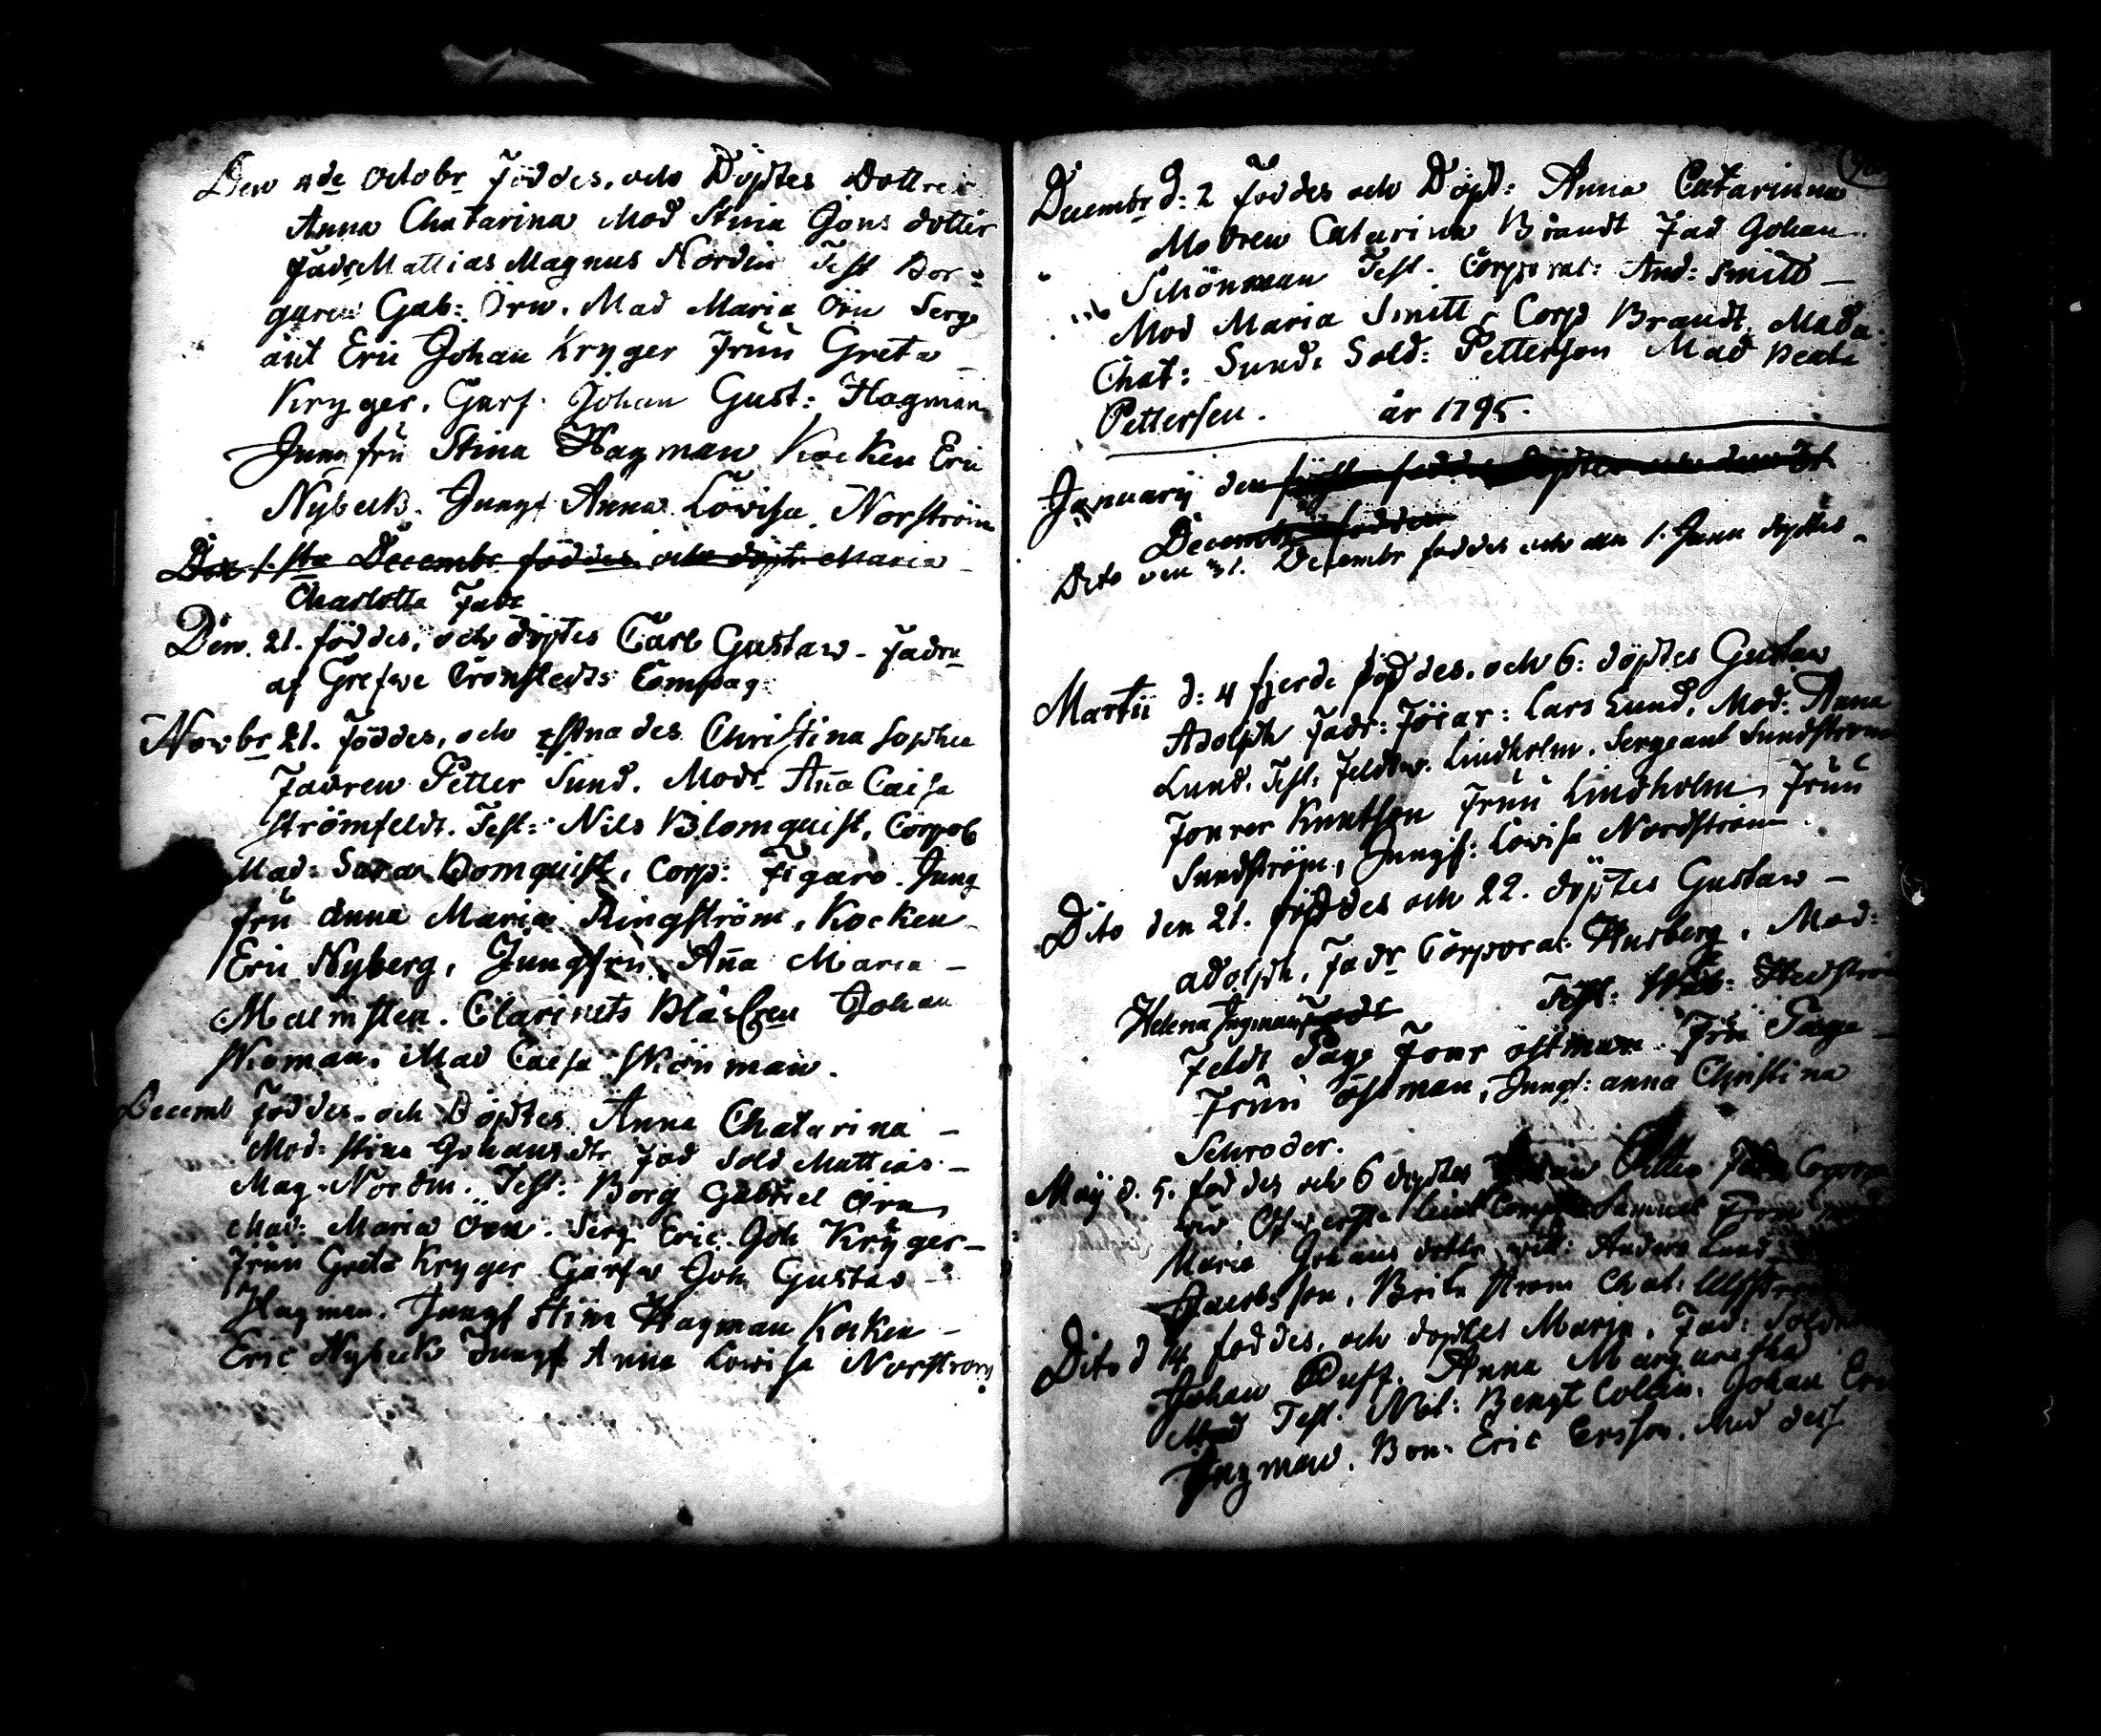 Den 4de Octobr Föddes, och Döptes Dottren
Anna Chatarina Mod Stina Jons dotter
Fadr Mattias Magnus Nordin Test Bor=
garen Gab: Örn. Mad Maria Örn Serge
ant Eric Johan Kryger Fruu Greta
Kryger. Garf. Johan Gust: Hagman
Jungfru Stina Hagman Kocken Eric
Nybeck. Jungf Anna Lowisa Norström
Den 1.sta Decembr föddes och döpt. Maria
Charlotta Fadr
Den. 21. föddes, och döptes Carl Gustaw - Fadrn
af Grefwe Cronstedts Compag:
Novbr 21. Föddes, och Christina Sophia
Fadren Petter Sund. Modr. Aña Caisa
Strömfeldt. Test: Nils Blomquist, Corpol
Mad: Sara Blomquist, Corp: Figaro. Jung
fru Anna Maria Ringström, Kocken
Eric Nyberg, Jungfru Aña Maria -
Malmsten. Clarinets Blåsren Johan
Mad Caisa
Decemb Föddes. och Döptes Anna Chatarina -
Mod: Stina Johansdtr Fad Sold Mattias -
Mag. Nordin. Test: Borg Gabriel Örn,
Mad: Maria Örn. Serg Eric Joh Kryger -
Fruu Greta Kryger Garfw Joh Gustav -
Hagman. Jungf Stina Hagman Kocken -
Eric Nybeck Jungf Anna Lowisa Norström
Decembr d: 2 Föddes och Döpt: Anna Catarinna
Modren Catarina Brandt Fad Johan
Schönman Test. Corporal: And: Smitt -
Mod Maria Smitt, Corp Brandt. Mada:
Chat: Sund. Sold: Petterson Mad Beata
Petterson. år 1795.
Januarij den föddes döptes och den
Decembr födden
Dito den 31. Decembr föddes och den 1. Janu döptes
Martii d: 4 fjerde föddes. och 6: döptes Gustaw
Adolph Fadr: Förar: Lars Lund, Mod: Anna
Lund. Test: Feldtw. Lindholm. Sergeant Sundström
Fourer Knutson Fruu Lindholm, Fruu
Sundström, Jungf: Lowisa Nordström.
Dito den 21. föddes och 22. döptes Gustaw -
adolph. Fadr Corporal Husberg, Mod:
Helena Ingman Test: Hedström
Feldt Four östman Fru
Fruu Östman, Jungf: anna Christina
Schroder.
Maij d. 5. föddes och 6 döptes Petter
Comp Samuel
Maria Johans dottr Anders Lund
Jacobsson, Brita Ström Chat:
Dito d 14 föddes, och döptes Maria, Fad: Sold
Johan Anna Margaretha
Test. Bengt Collin. Johan Eric
Ingman. Bon. Eric Ersson. Med dess